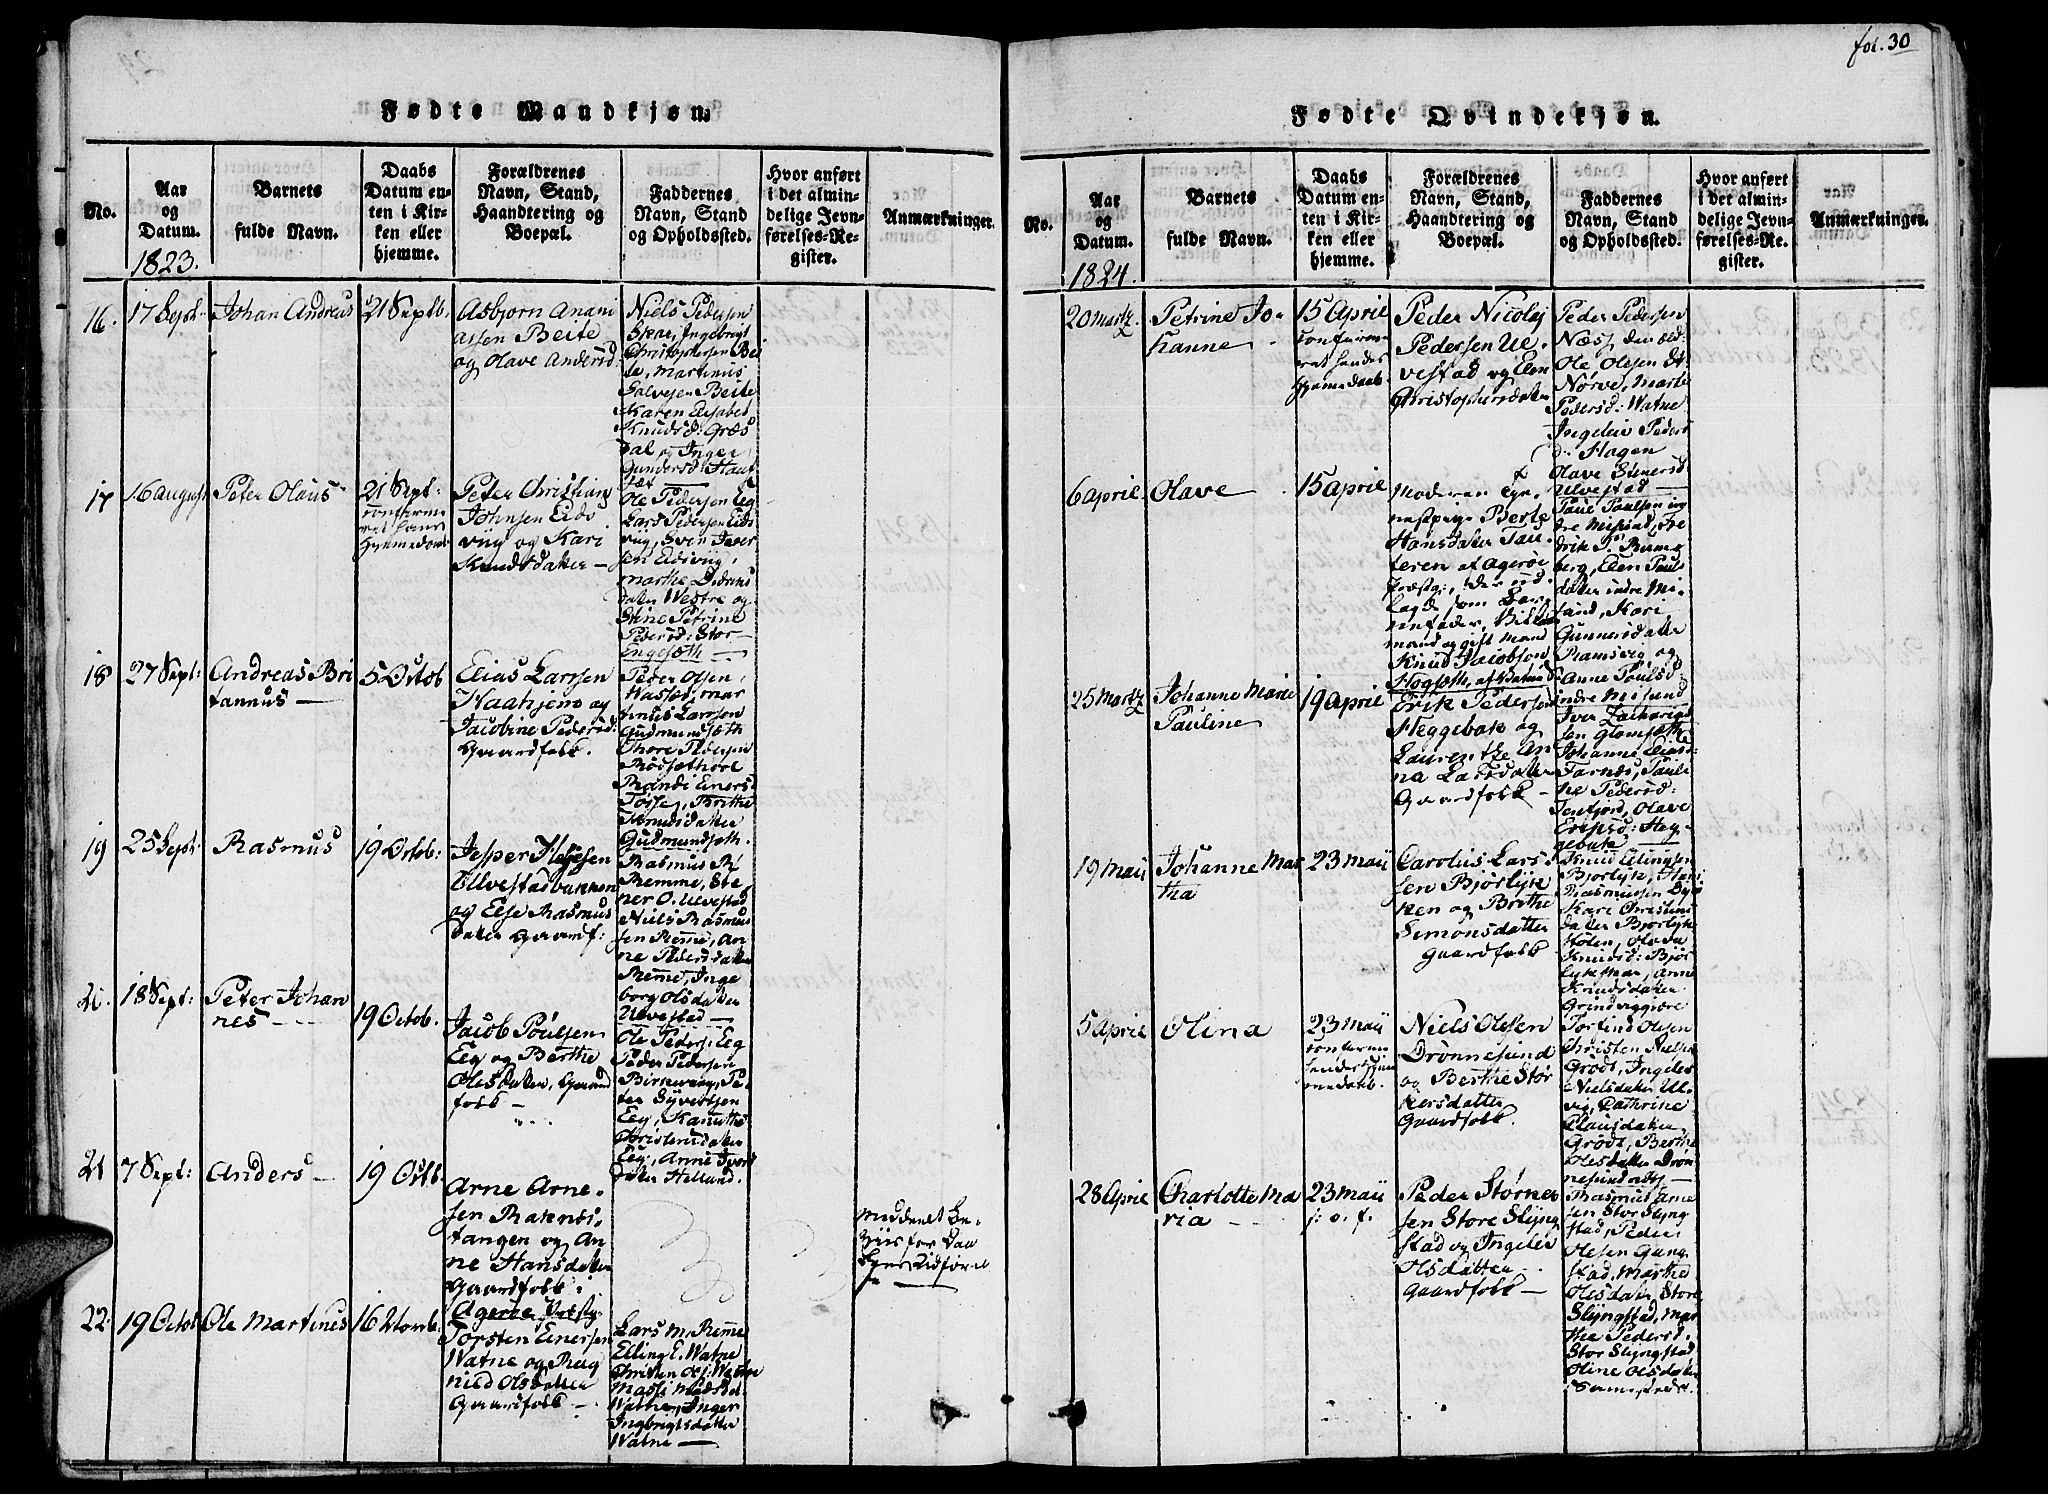 fol. 30
Fødte Mandkjøn.
No.
Aar
og
Datum.
1823.
Barnets
fulde Navn.
Daabs
Datum en-
ten i Kir-
ken eller
hjemme.
Forældrenes
Navn, Stand,
Haandtering og
Boepæl.
Faddernes
Navn, Stand
og Opholdssted.
Hvor anført
i det almin-
delige Jevn-
førelses-Re-
gister.
Anmærkninger.
16.
17 Sept.
Johan Andreas
21 Septb.
Asbjørn Anani
assen Beite
og Olave Andersd
Niels Pedersen
Skar, Ingebrigt
Christophersen Bei
te, Martinus
Salvesen Beite
Karen Elisabed
Knudsd: Græs
dal og Inger
Gundersd:
17
16 august
Peter Olaus
21 Sept:
hjemedaab
Peter Christian
Johnsen Eids
viig og Kari
Knudsdatter —
Ole Pedersen Eeg
Lars Pedersen Eids
viig, Sven Iver
sen Eidsviig,
Marthe Didriks
datter Westre og
Stine Petrine
Pedersd: Stor
Engesæth —
18
27 Sept:
Andreas Bri
tannus —
5 Octob
Elias Larssen
Naahjem og
Jacobine Pedersd:
Gaardfolk.
Peder Olsen,
Wasset, Mar
tinus Larssen
Gudmundsæth
Thore Pedersen
Røssæthole
Randi Einersd
Tosse, Brithe
Knudsdatter
Gudmundsæth.
19
25 Sept.
Rasmus
19 Octob:
Jesper Helgesen
Ullvestadbakken
og Else Rasmus
datter Gaardf:
Rasmus R.
Remme, Ste
ner O. Ulvestad
Niels Rasmus
sen Reme, An
ne Pedersdatter
Reme, Inge
borg Olsdatter
Ulvestad —
20.
18 Sept:
Peter Johan
nes —
19 Octob.
Jacob Poulsen
Eeg og Berthe
Olesdatter, Gaard
folk —
Ole Peders: Eeg
Peder Pedersen
Birkevaag, Pe-
ter Syvertsen
Eeg, Kanuthe
Christensdatter
Eeg, Anne Ivers
datter Helland.
21
7 Sept:
Anders —
19 Octb.
Arne Arne-
sen Raknes-
tangen og An
ne Hansdatter
Gaardfolk i
Agerøe Præstg:
meddeelt Be-
viis for Daa
bens Udførel
se —
22.
19 Octob
Ole Martinus
16 Novb.
Torsten Einersen
Watne og Rag
nild Olsdatter
Gaardfolk —
Lars M. Reme
Elling E. Watne
Christen Ols: Watne
Massi Madsd.
Watne, Inger
Ingbrigtsdatter
Watne —
Fødte Qvindekjøn.
No.
Aar
og
Datum.
1824.
Barnets
fulde Navn.
Daabs
Datum en-
ten i Kir-
ken eller
hjemme.
Forældrenes
Navn, Stand,
Haandtering og
Boepæl.
Faddernes
Navn, Stand
og Opholdssted.
Hvor anført
i det almin-
delige Jevn-
førelses-Re-
gister.
Anmærkninger.
20 Martz.
Petrine Jo-
hanne
15 April
confirme
ret hendes
hjemedaab
Peder Nicolaj
Pedersen Ul-
vestad og Elen
Christophersdatter
Peder Pedersen
Næss, den æld:
Ole Olesen
Nørve, Marte
Pedersd: Watne
Ingeleiv Peders
d: Hagen
Olave Einersd
Ulvestad —
6 April
Olave
15 April
Moderen
Pige Berte
Hansdatter
teren af Agerøe
Præstg:, der ud
lagde som Bar-
nefader,
mand og gift Mand
Knud Jacobsen
Hogsæth, af
Poul Poulsen in
dre Misund, Fre
drik
berg, Elen Pouls
datter indre Mi-
sund, Kari
Gunnersdatter
Ramsvig og
Anne Poulsd:
indre Misund
25 Martz
Johanne Marie
Pauline
19 April
Erik Pedersen
Heggebak og
Laurentze An
na Larsdatter
Gaardfolk —
Iver Zacharias
sen Glomsæth
Johanne Eliasd:
Farnes, Pauli
ne Pedersd:
Tenfjord, Olave
Eriksd: Heg-
gebak —
19 Maii
Johanne Mar
tha
23 Maii
Carolus Lars
sen Bjørlyk
ken og Brithe
Simonsdatter
Gaardfolk
Knud Ellingsen
Bjørlyk,
Rasmussen
Kari Christens
datter Bjørlyke
støten, Olave
Knudsd: Bjør
lykkhou, Anne
Knudsdatter
Grindviggjære
5 April
Olina
23 Maii
confirme
hendes hjem
medaab
Niels Olesen
Drønnesund
og Berthe Stør
kersdatter
Gaardfolk
Torfind Olesen
Christen Niels
Grødt, Ingeleiv
Nielsdatter Ul-
vig, Cathrine
Clausdatter
Grødt, Berthe
Olesdatter Drøn
nesund —
28 April
Charlotte Ma
ria — -
23 Maii
j. o. f.
Peder Størker
sen Store Slyng
stad og Ingeleiv
Olsdatter
Gaardfolk —
Rasmus Arne
sen Stor Slyng
stad, Peder
Olesen Gang
stad, Marthe
Olesdatter Store
Slyngstad, Mar
the Pedersd.
Stor Slyngstad
Oline Olsdatter
i samesteds.